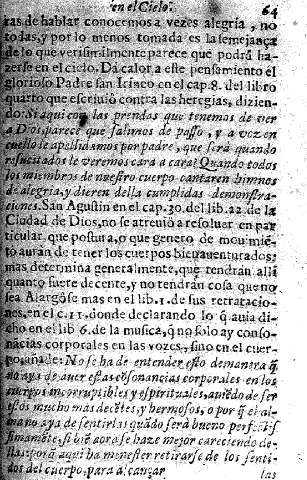 en el Cielo. 64
ras de hablar conocemos a vezes alegria, no
todas, y por lo menos tomada es la semejança
de lo que verisimilmente parece que podrà ha-
zerse en el cielo. Dà calor a este pensamiento el
glorioso Padre san Irineo en el cap. 8. del libro
quarto que escriuiò contra las heregias, dizien-
do: Si aqui con las prendas que tenemos de ver
a Dios, parece que salimos de passo, y a voz en
cuello le apellidamos por padre, que serà quando
resucitados le veremos cara a cara? Quando todos
los miembros de nuestro cuerpo cantaren himnos
de alegria, y dieren della cumplidas demonstra-
ciones. San Agustin en el cap. 30. del lib. 22. de la
Ciudad de Dios, no se atreuiò a resoluer en par
ticular, que postura, o que genero de mouimiẽ
to auran de tener los cuerpos bienauenturados:
mas determina generalmente, que tendràn alli
quanto fuere decente, y no tendràn cosa que no
sea. Alargòse mas en el lib. 1. de sus retrataicio-
nes, en el c. 11. donde declarando lo q̃ auia di-
cho en el lib 6. de la musica, q̃ no solo ay conso-
nãcias corporales en las vozes, sino en el cuer-
po, añade: No se ha de entender esto demanera q̃
no aya de auer estas cõsonancias corporales en los
cuerpos incorruptibles y espirituales, auiẽdo de ser
estos mucho mas decẽtes, y hermosos, o por q̃ el al-
ma no aya de sentirlas quãdo serà bueno perfec-
tissimamẽte, si biẽ aora se haze mejor careciendo de-
llas: por q̃ aqui ha menester retirarse de los senti-
dos del cuerpo, para alcançar
las